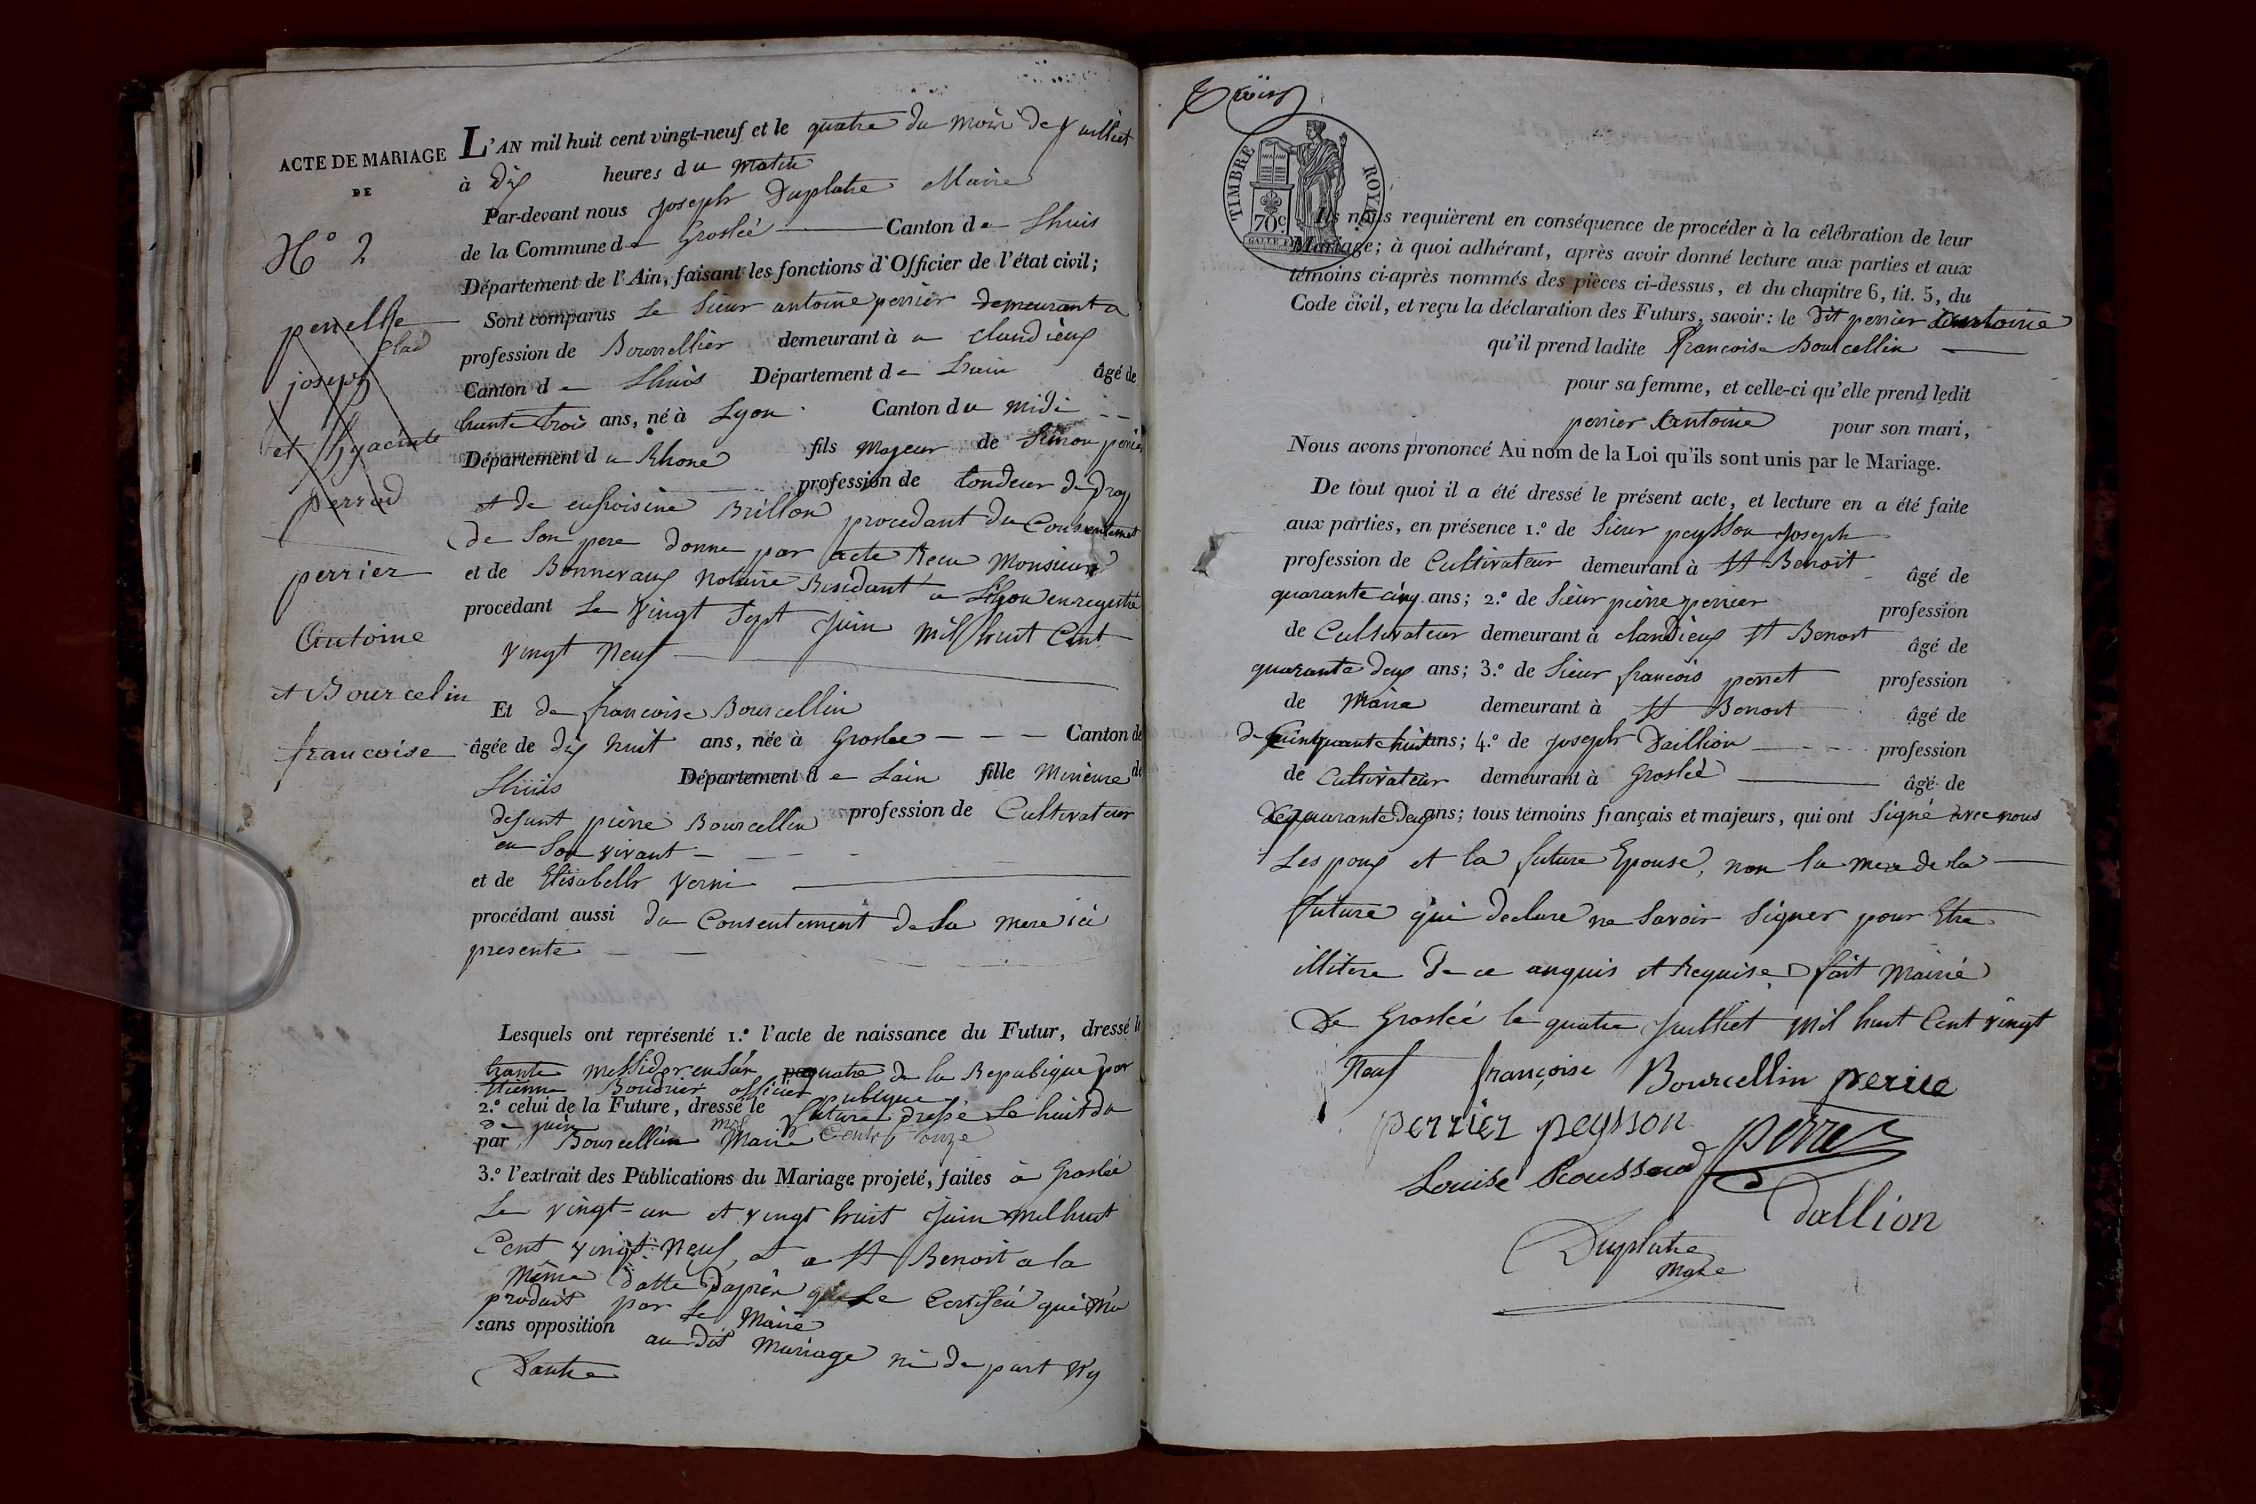 ACTE DE MARIAGE
DE
N° 2
perrier
Antoine
et Bourcelin
francoise
L'AN mil huit cent vingt-neuf et le quatre du mois de Juilliet
à dix heures du matin
Par-devant nous Joseph Duplatre Maire
de la Commune de Groslée Canton de Lhuis
Département de l'Ain, faisant les fonctions d'Officier de l'état civil;
Sont comparus Le Sieur antoine perrier demeurant a
profession de Bourrellier demeurant à a
Canton de Lhuis Département de Lain âgé de
trante trois ans, né à Lyon Canton du midi
Département du Rhone fils Majeur de Simon perrier
profession de tondeur de Drap
et de eufroisine Brillon procedant du Consentement
de Son pere donne par acte Recu Monsieur
et de Bonnevaux Notaire Residant a Lÿon enregistré
procédant Le Vingt Sept Juin Mil huit Cent
vingt Neuf
Et de francoise Bourcellin
âgée de dix huit ans, née à Groslee Canton de
Lhuis Département de Lain fille Mineure de
defunt pierre Bourcellin profession de Cultivateur
en Son vivant
et de Elisabeth Verni
procédant aussi du Consentement de La mere ici
presente
Lesquels ont représenté 1.° l'acte de naissance du Futur, dressé le
trante Messidor en Lan quatre de la Republique par
Etienne Boudrier officier publique
2.° celui de la Future, dressé le future dressé Le huit du
de juin mil huit Cent onze
par Bourcellin Maire
3.° l'extrait des Publications du Mariage projeté, faites à Groslée
Le vingt-un et vingt huit Juin Mil huit
Cent vingt Neuf et a St Benoit a la
Même datte Daprèr Le Certificà qui Ma
produit par Le Maire
sans opposition au dit Mariage ni de part Ny
Dautre
Trois
TIMBRE ROYAL
70c.
Ils nous requièrent en conséquence de procéder à la célébration de leur
Mariage; à quoi adhérant, après avoir donné lecture aux parties et aux
témoins ci-après nommés des pièces ci-dessus, et du chapitre 6, tit. 5, du
Code civil, et reçu la déclaration des Futurs, savoir: le dit perrier Antoine
qu'il prend ladite francoise Bourcellin
pour sa femme, et celle-ci qu'elle prend ledit
perrier Antoine pour son mari,
Nous avons prononcé Au nom de la Loi qu'ils sont unis par le Mariage.
De tout quoi il a été dressé le présent acte, et lecture en a été faite
aux parties, en présence 1.° de Sieur peysson Joseph
profession de Cultivateur demeurant à St Benoit âgé de
quarante cinq ans; 2.° de Sieur pierre perrier profession
de Cultivateur demeurant à St Benoit âgé de
quarante deux ans; 3.° de Sieur francois perret profession
de Maire demeurant à St Benoit âgé de
de Cinquante huit ans; 4.° de Joseph Daillion profession
de Cultivateur demeurant à Groslée âgé de
de quarante deux ans; tous témoins français et majeurs, qui ont Signé avec nous
Les poux et la future Epouse, non la mere de la
future qui declare ne Savoir Signer pour Etre
illitere de ce anquis et Requise fait Mairie
De Groslée le quatre Juilliet Mil huit Cent vingt
Neuf françoise Bourcellin
perrier peysson perret
Louise Roussead
Dallion
Duplatre
Maire